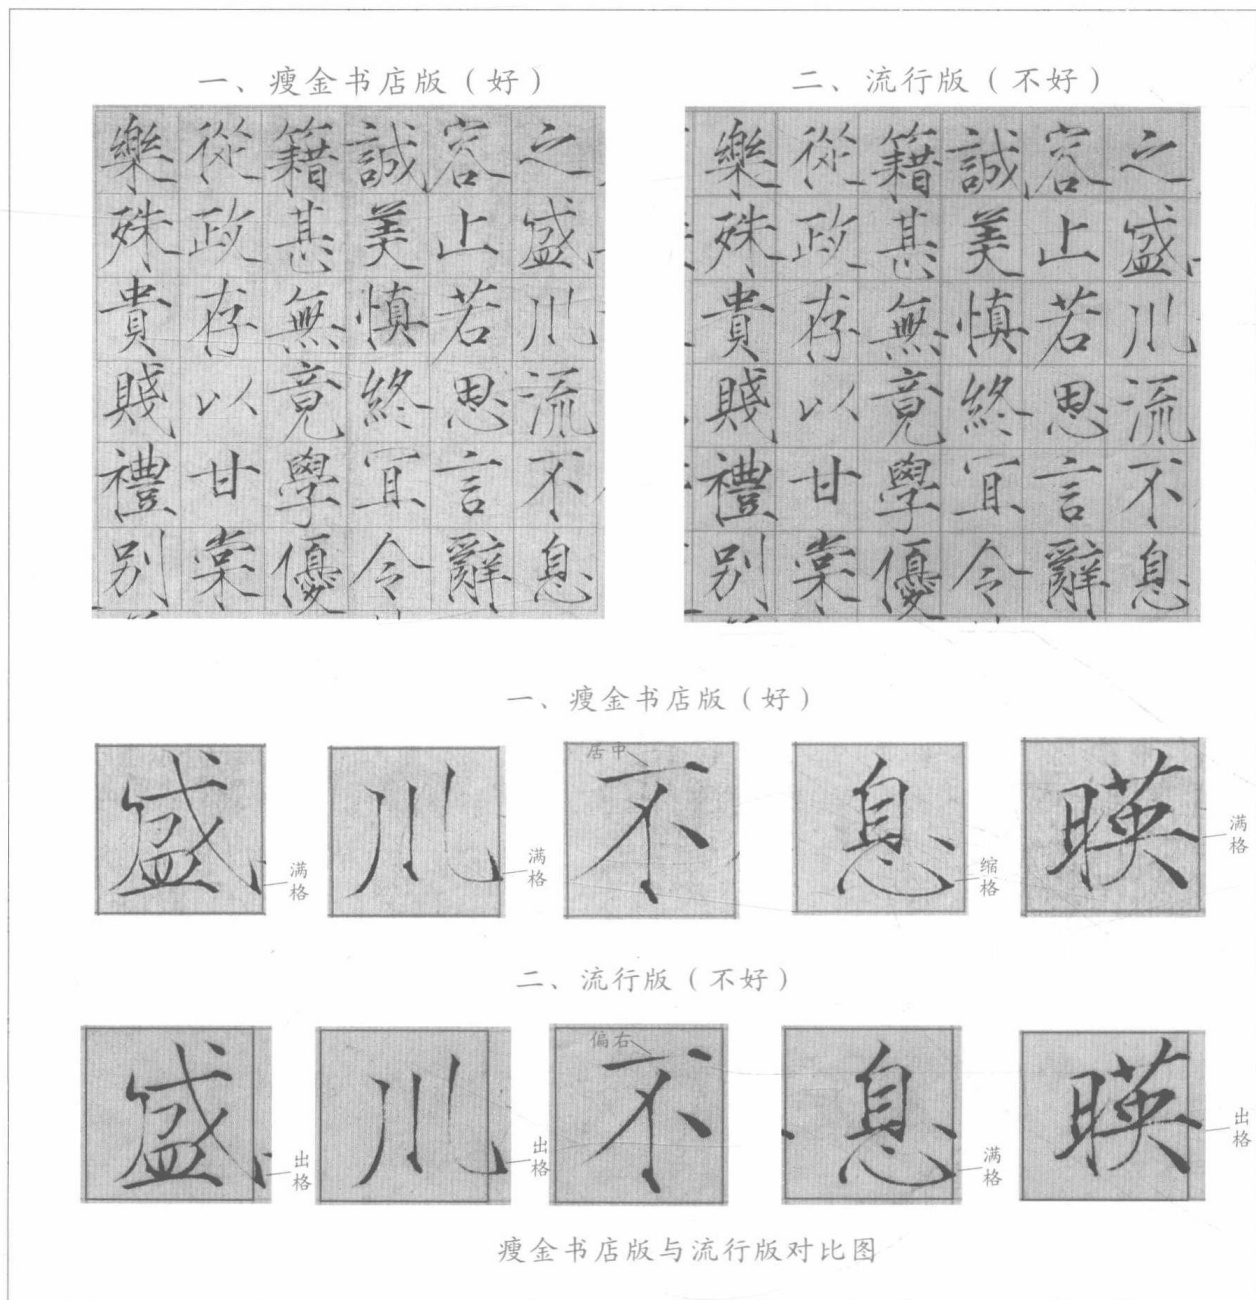 一、瘦金书店版（好）
之盛川流不息
容止若思言辭
誠美慎終宜令
籍甚無竟學優
從政存以甘棠
樂殊貴賤禮别
二、流行版（不好）
之盛川流不息
容止若思言辭
誠美慎終宜令
籍甚無竟學優
從政存以甘棠
樂殊貴賤禮别
一、瘦金书店版（好）
盛
满格
川
满格
居中
不
息
缩格
暎
满格
二、流行版（不好）
盛
出格
川
出格
偏右
不
息
满格
暎
出格
瘦金书店版与流行版对比图